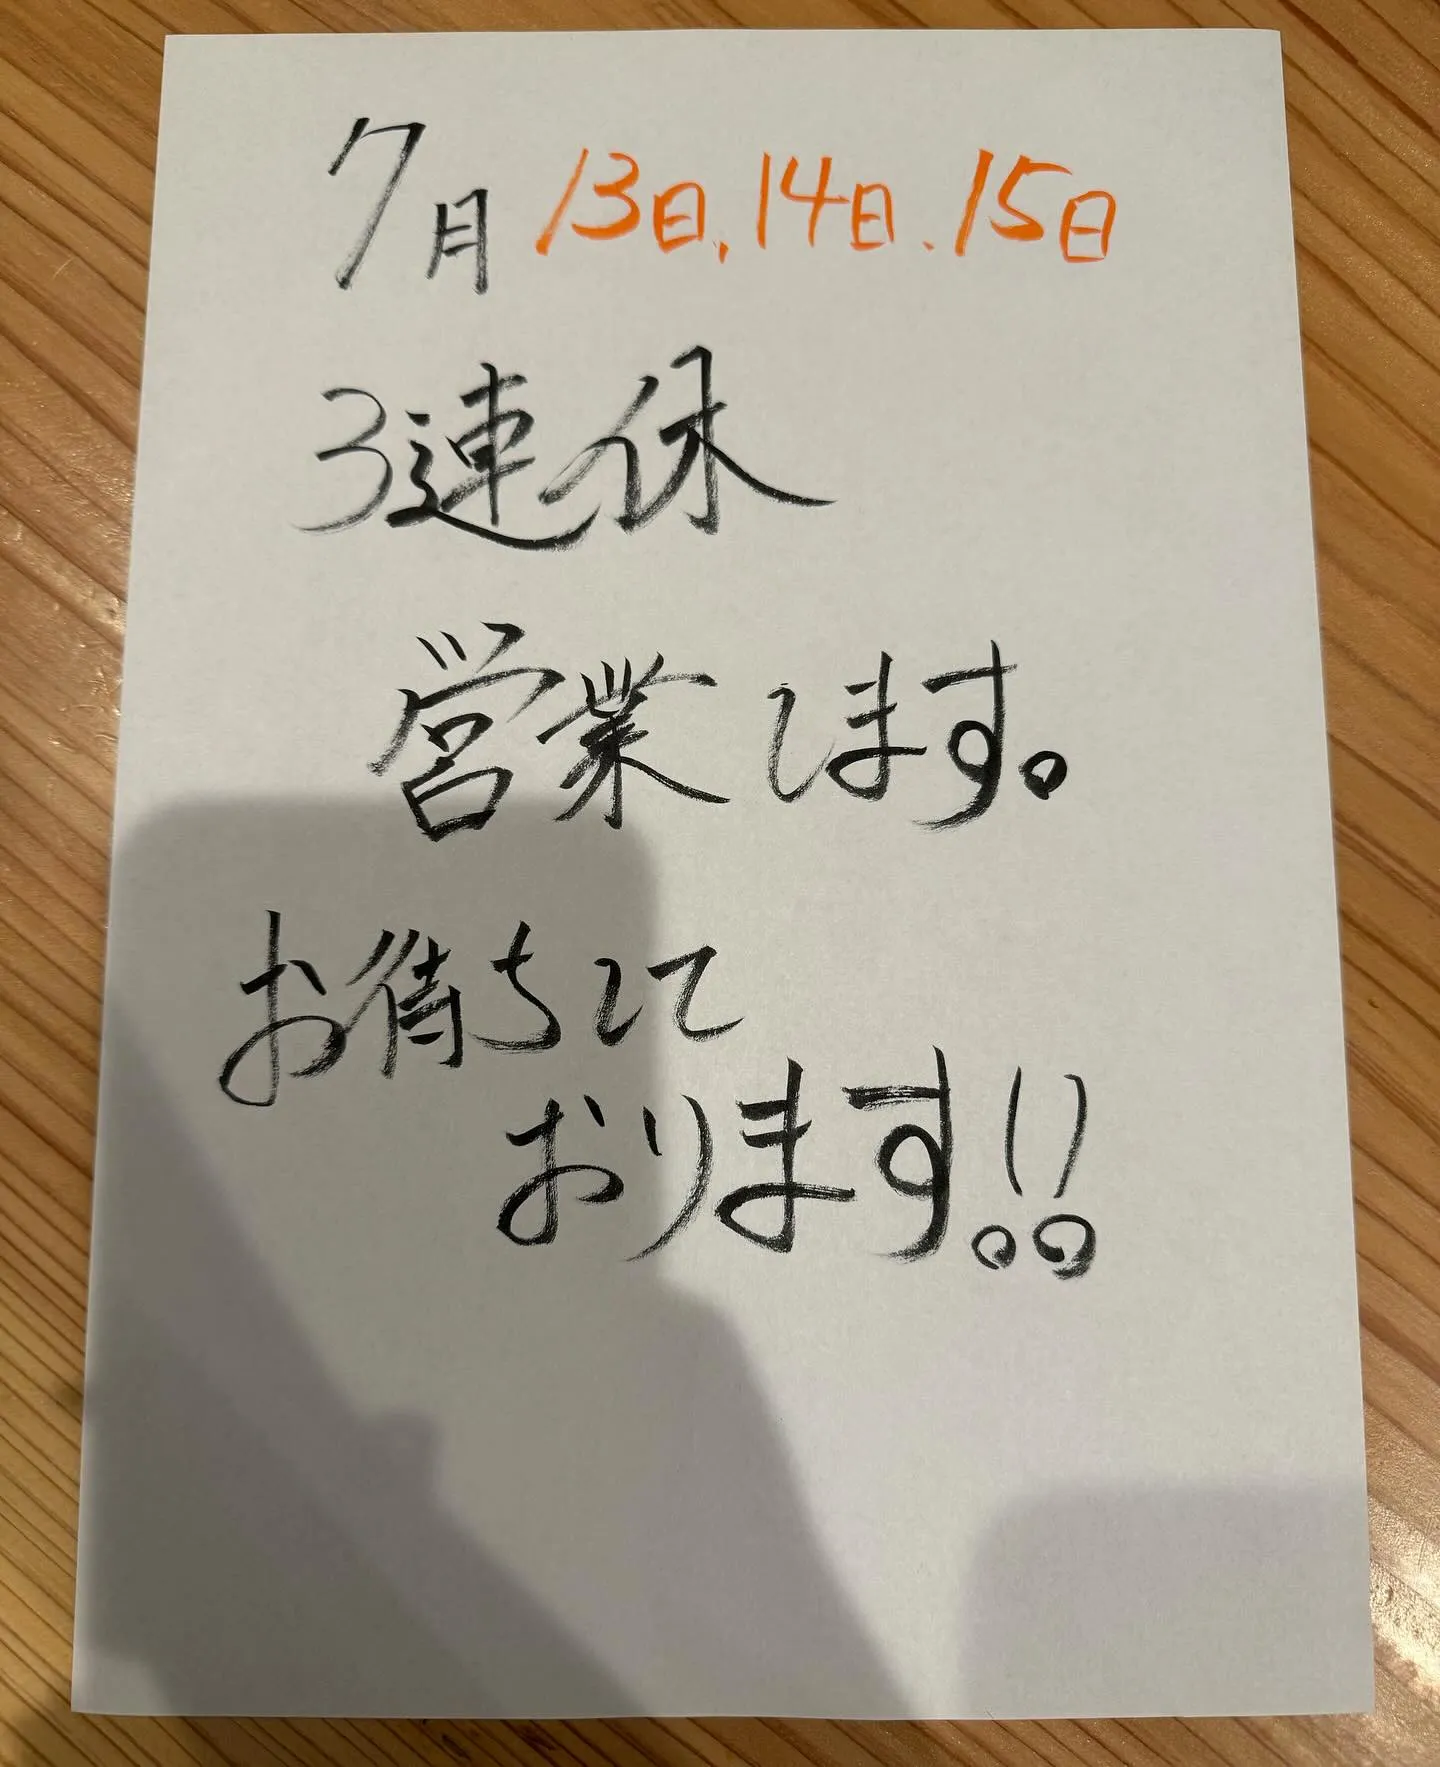 7月 13日、14日、15日
3連休
営業します。
お待ちして
おります!!